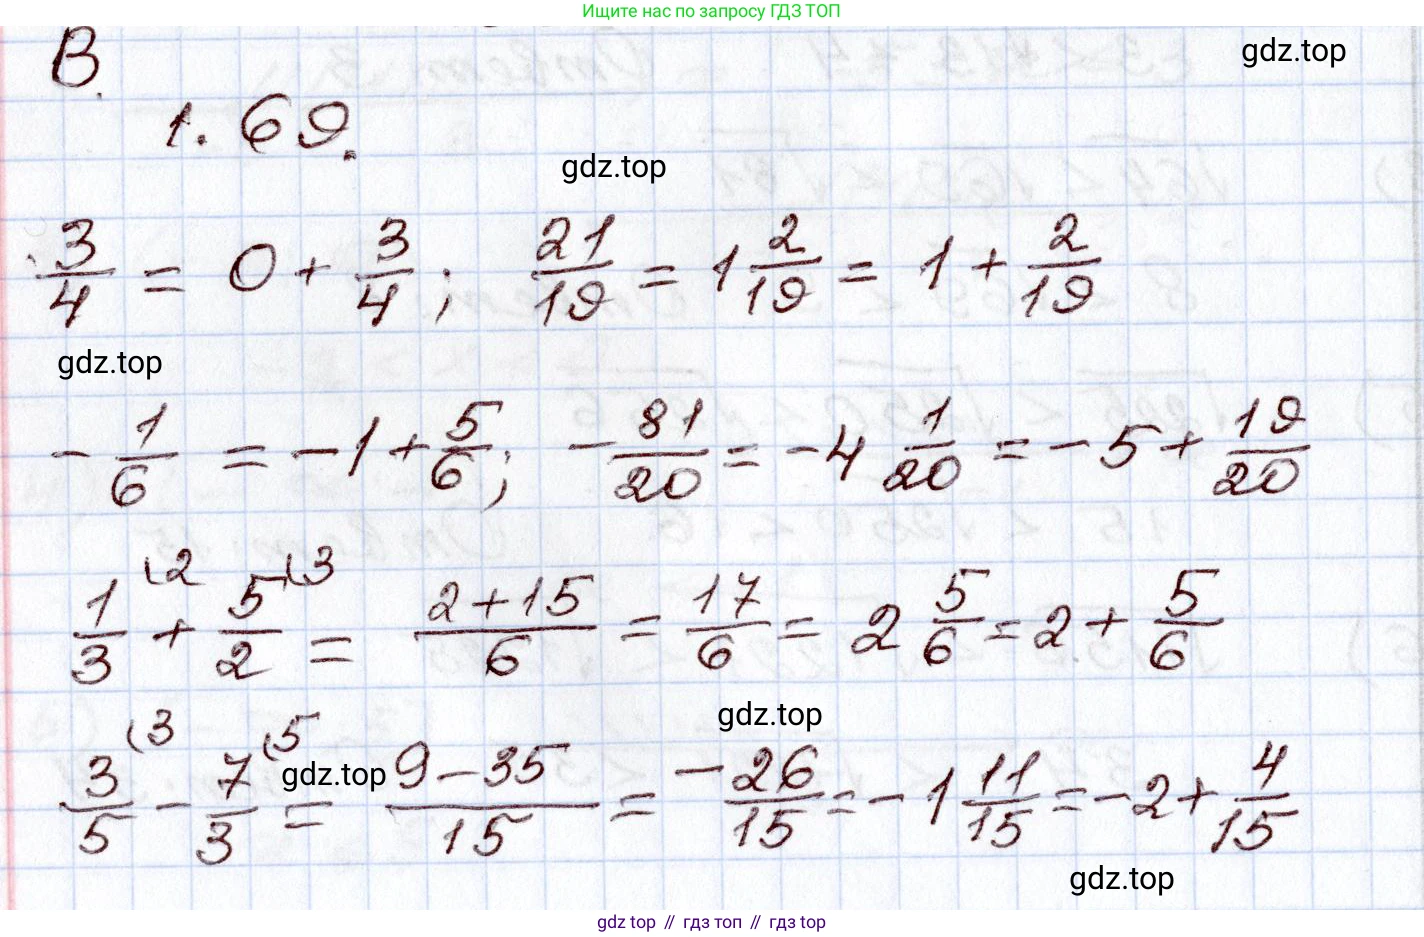 Ищите нас по запросу ГДЗ ТОП
В.
gdz.top
1.69.
gdz.top
3/4 = 0 + 3/4; 21/19 = 1 2/19 = 1 + 2/19
gdz.top
- 1/6 = -1 + 5/6; - 81/20 = -4 1/20 = -5 + 19/20
1/3 (2 + 5/2 (3 = (2+15)/6 = 17/6 = 2 5/6 = 2 + 5/6
gdz.top
3/5 (3 - 7/3 (5 = (9-35)/15 = -26/15 = -1 11/15 = -2 + 4/15
gdz.top
gdz.top
gdz top // гдз топ // gdz top